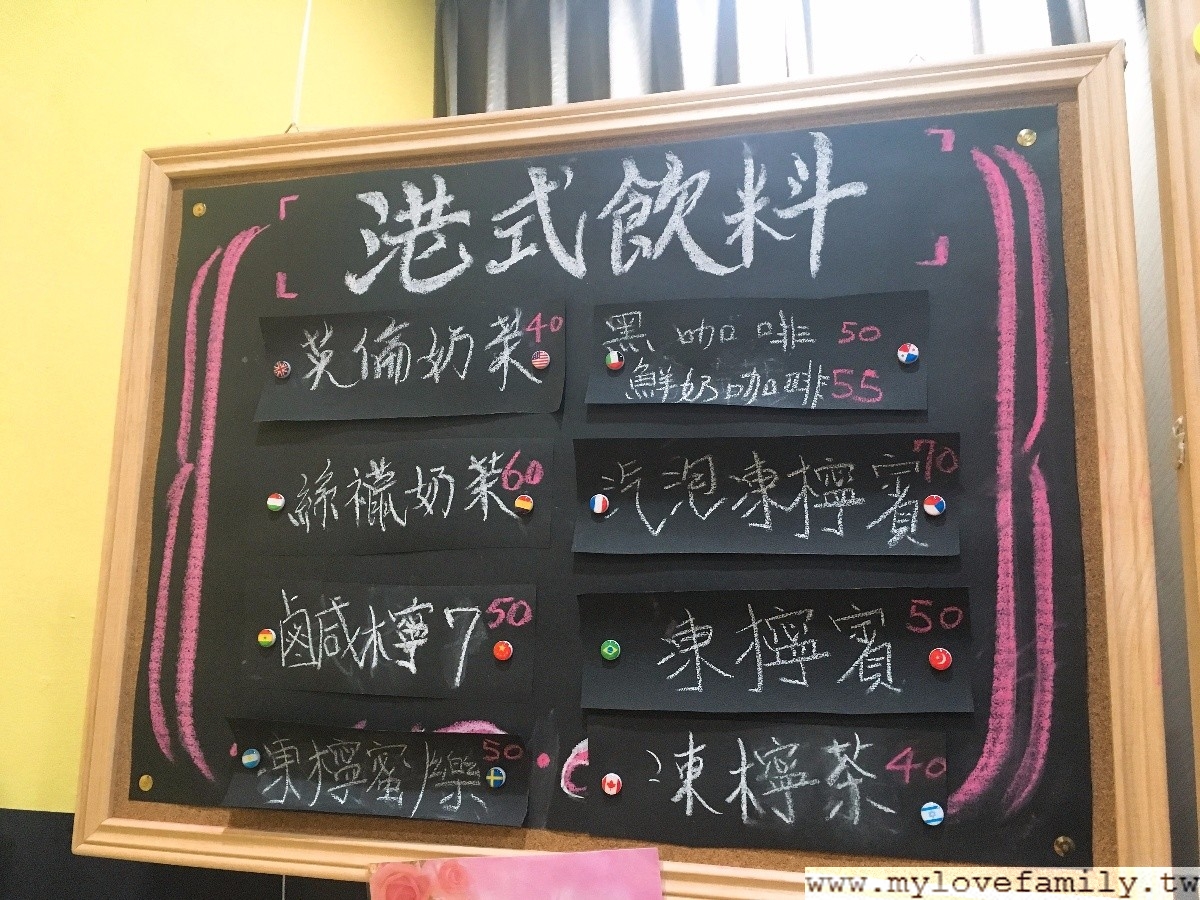 港式飲料
英倫奶茶 40
黑咖啡 50
鮮奶咖啡 55
絲襪奶茶 60
汽泡凍檸賓 70
鹵咸檸7 50
凍檸賓 50
凍檸蜜/樂 50
凍檸茶 40
www.mylovefamily.tw